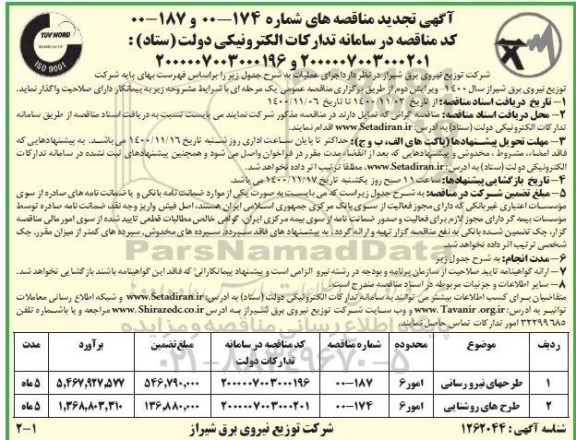 آگهی تجدید مناقصه های شماره ۱۷۴-۰۰ و ۱۸۷-۰۰
کد مناقصه در سامانه تدارکات الکترونیکی دولت (ستاد) :
۲۰۰۰۰۰۷۰۰۳۰۰۰۲۰۱ و ۲۰۰۰۰۰۷۰۰۳۰۰۰۱۹۶
TUV NORD
ISO 9001
شرکت توزیع نیروی برق شیراز در نظر دارد اجرای عملیات به شرح جدول زیر را براساس فهرست بهای پایه شرکت
توزیع نیروی برق شیراز سال ۱۴۰۰ ویرایش دوم از طریق برگزاری مناقصه عمومی یک مرحله ای با شرایط مشروحه زیر به پیمانکار دارای صلاحیت واگذار نماید.
۱- تاریخ دریافت اسناد مناقصه: از تاریخ ۱۴۰۰/۱۱/۰۲ تا تاریخ ۱۴۰۰/۱۱/۰۶
۲- محل دریافت اسناد مناقصه: مناقصه گرانی که تمایل دارند در مناقصه مذکور شرکت نمایند می بایست نسبت به دریافت اسناد مناقصه از طریق سامانه
تدارکات الکترونیکی دولت (ستاد) به آدرس: www.Setadiran.ir اقدام نمایند.
۳- مهلت تحویل پیشنهادها (پاکت های الف، ب و ج): حداکثر تا پایان ساعت اداری روز شنبه تاریخ ۱۴۰۰/۱۱/۱۶ می باشد. به پیشنهادهایی که
فاقد امضاء، مشروط، مخدوش و پیشنهادهایی که بعد از انقضاء مدت مقرر در فراخوان واصل می شود و همچنین پیشنهادهای ثبت نشده در سامانه تدارکات
الکترونیکی دولت (ستاد) به آدرس: www.Setadiran.ir مطلقا ترتیب اثر داده نخواهد شد.
۴- تاریخ بازگشایی پیشنهادها: ساعت ۱۱ صبح روز یکشنبه تاریخ ۱۴۰۰/۱۱/۱۷ می باشد.
۵- مبلغ تضمین شرکت در مناقصه: به شرح جدول زیر است که می بایست به صورت یکی از موارد ضمانت نامه بانکی و یا ضمانت نامه های صادره از سوی
مؤسسات اعتباری غیربانکی که دارای مجوز فعالیت از سوی بانک مرکزی جمهوری اسلامی ایران هستند، اصل فیش واریز وجه نقد، ضمانت نامه صادره توسط
مؤسسات بیمه گر دارای مجوز لازم برای فعالیت و صدور ضمانت نامه از سوی بیمه مرکزی ایران، گواهی خالص مطالبات قطعی تایید شده از سوی امور مالی مناقصه
گزار، چک تضمین شده بانکی به نفع مناقصه گزار تهیه و ارائه گردد. به پیشنهادهای فاقد سپرده، سپرده های مخدوش، سپرده های کمتر از میزان مقرر، چک
شخصی ترتیب اثر داده نخواهد شد.
۶- مدت انجام: به شرح جدول زیر
۷- ارائه گواهینامه تایید صلاحیت از سازمان برنامه و بودجه در رشته نیرو الزامی است و پیشنهاد پیمانکارانی که فاقد این گواهینامه باشند بازگشایی نخواهد شد.
۸- سایر اطلاعات و جزئیات مربوطه در اسناد مناقصه مندرج است.
متقاضیان برای کسب اطلاعات بیشتر می توانند به سامانه تدارکات الکترونیکی دولت (ستاد) به آدرس: www.Setadiran.ir و شبکه اطلاع رسانی معاملات
توانیر به آدرس: www.Tavanir.org.ir و وب سایت شرکت توزیع نیروی برق شیراز به آدرس: www.Shirazedc.co.ir مراجعه و یا با شماره تلفن
۳۲۲۹۹۶۸۵ امور تدارکات تماس حاصل نمایند.
ParsNamadData
پایگاه اطلاع رسانی مناقصه و مزایده
۰۲۱-۸۸۳۴۹۶۷۰-۵
ردیف موضوع محدوده شماره مناقصه کد مناقصه در سامانه تدارکات دولت مبلغ تضمین برآورد مدت
۱ طرحهای نیرو رسانی امور ۶ ۱۸۷-۰۰ ۲۰۰۰۰۰۷۰۰۳۰۰۰۱۹۶ ۵۴۶,۷۹۰,۰۰۰ ۵,۴۶۷,۹۲۷,۵۷۷ ۵ ماه
۲ طرح های روشنایی امور ۶ ۱۷۴-۰۰ ۲۰۰۰۰۰۷۰۰۳۰۰۰۲۰۱ ۱۳۶,۸۸۰,۰۰۰ ۱,۳۶۸,۸۰۳,۳۱۰ ۵ ماه
شناسه آگهی: ۱۲۶۲۰۴۴
شرکت توزیع نیروی برق شیراز
۲-۱